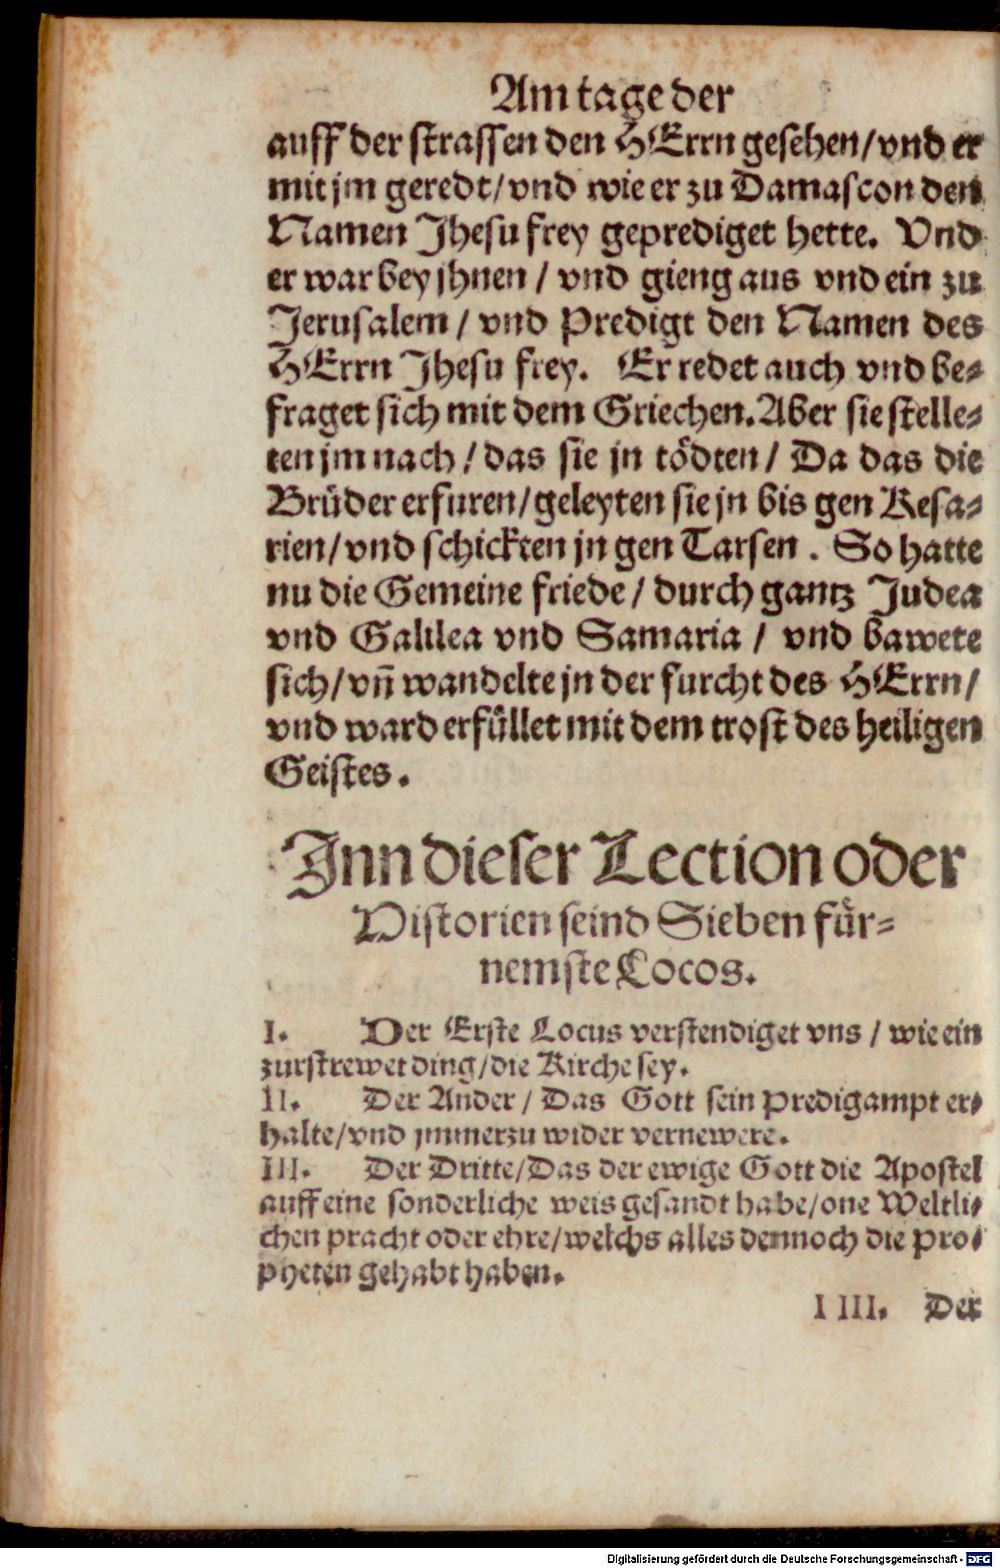 Am tage der
auff der strassen den HErrn gesehen/vnd er
mit jm geredt/vnd wie er zu Damascon den
Namen Jhesu frey geprediget hette. Vnd
er war bey jhnen / vnd gieng aus vnd ein zu
Jerusalem / vnd Predigt den Namen des
HErrn Jhesu frey. Er redet auch vnd be-
fraget sich mit dem Griechen. Aber sie stelle-
ten jm nach / das sie jn tödten / Da das die
Brüder erfuren/geleyten sie jn bis gen Kesa-
rien/vnd schickten jn gen Tarsen. So hatte
nu die Gemeine friede / durch gantz Judea
vnd Galilea vnd Samaria / vnd bawete
sich/vn̄ wandelte jn der furcht des HErrn/
vnd ward erfüllet mit dem trost des heiligen
Geistes.
Inn dieser Lection oder
Historien seind Sieben für-
nemste Locos.
I. Der Erste Locus verstendiget vns / wie ein
zurstrewet ding/die Kirche sey.
II. Der Ander / Das Gott sein Predigampt er-
halte/vnd jmmerzu wider vernewere.
III. Der Dritte/Das der ewige Gott die Apostel
auff eine sonderliche weis gesandt habe/one Weltli-
chen pracht oder ehre/welchs alles dennoch die Pro-
pheten gehabt haben.
IIII. Der
Digitalisierung gefördert durch die Deutsche Forschungsgemeinschaft - DFG